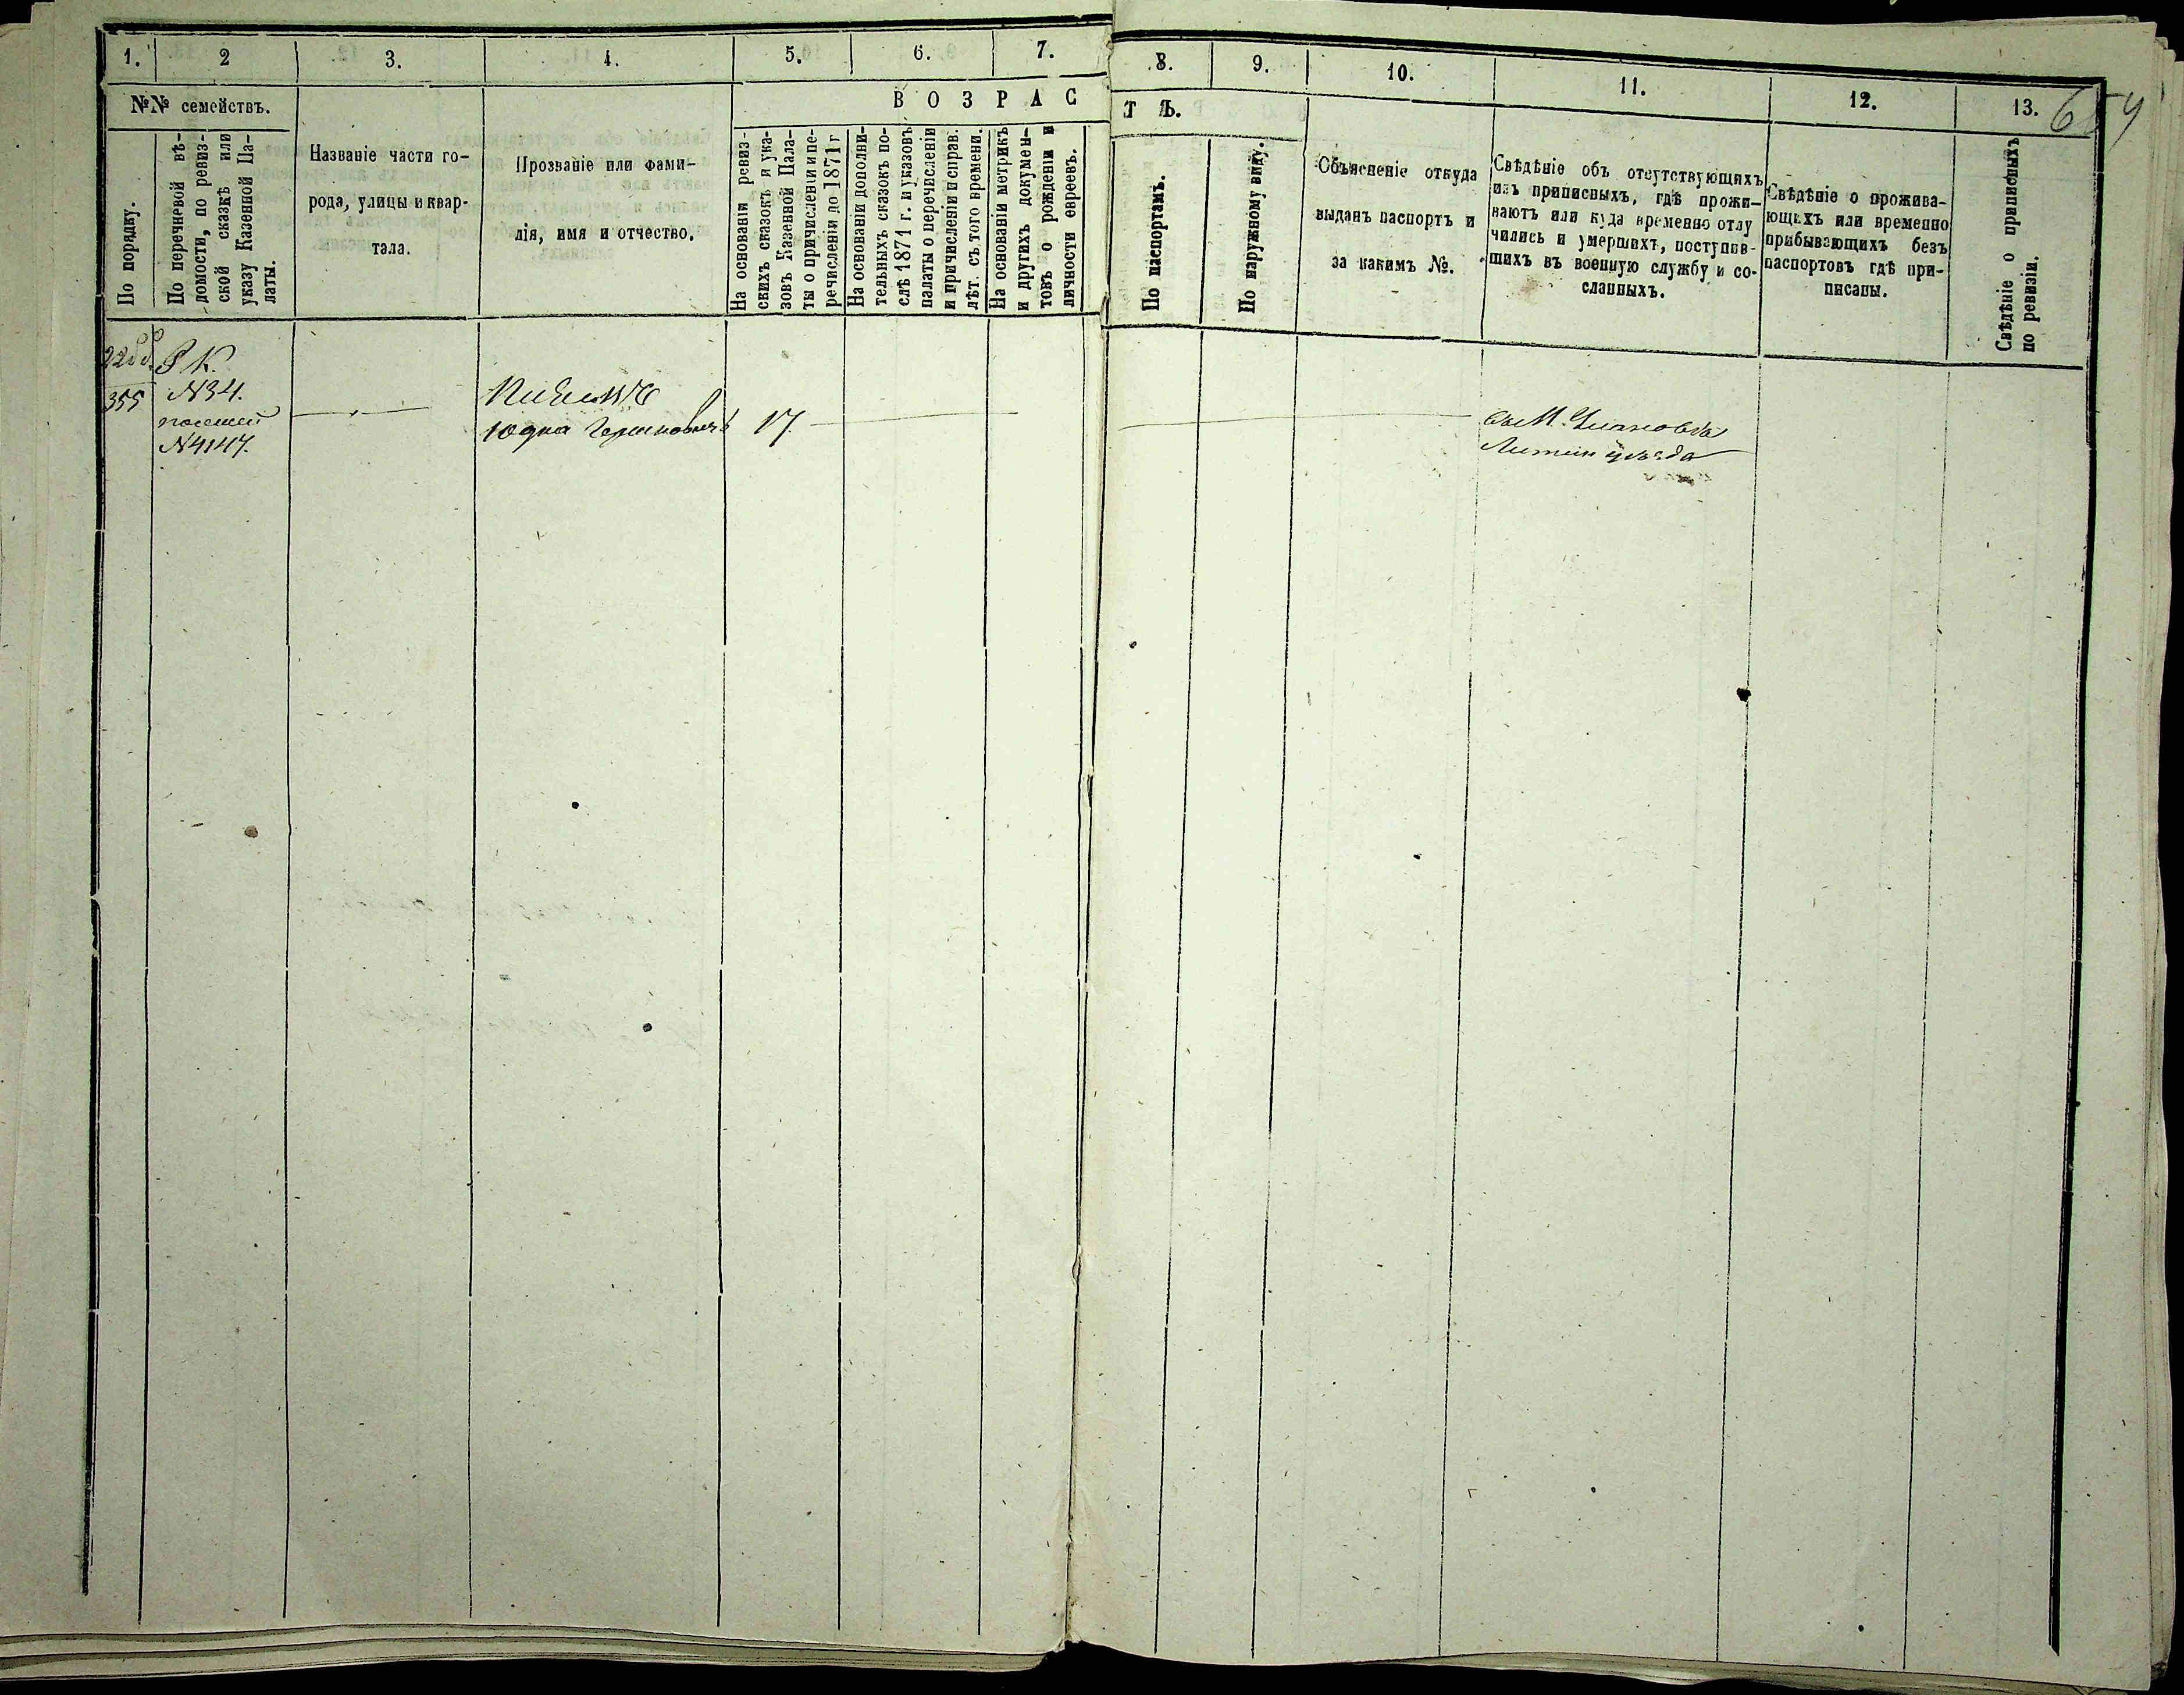 1.
2
3.
4.
5.
6.
7.
8.
9.
10.
11.
12.
13.
№№ семействъ.
По порядку.
По перечневой вѣ-
домости, по ревиз-
ской сказкѣ или
указу Казенной Па-
латы.
Названіе части го-
рода, улицы и квар-
тала.
Прозваніе или фами-
лія, имя и отчество.
ВОЗРАС
ТЪ.
На основаніи ревиз-
скихъ сказокъ и ука-
зовъ Казенной Пала-
ты о причисленіи и пе-
речисленіи до 1871 г
На основаніи дополни-
тельныхъ сказокъ по-
слѣ 1871 г. и указовъ
палаты о перечисленіи
и причисленіи и справ.
лѣт. съ того времени.
На основаніи метрикъ
и другихъ докумен-
товъ о рожденіи и
личности евреевъ.
По паспортамъ.
По наружному виду.
Объясненіе откуда
выданъ паспортъ и
за какимъ №.
Свѣдѣніе объ отсутствующихъ
изъ приписныхъ, гдѣ прожи-
ваютъ или куда временно отлу
чились и умершихъ, поступив-
шихъ въ военную службу и со-
сланныхъ.
Свѣдѣніе о прожива-
ющихъ или временно
прибывающихъ безъ
паспортовъ гдѣ при-
писаны.
Свѣдѣніе о приписныхъ
по ревизіи.
355
Р К.
№34.
№4147.
Юдка Гершковичъ
17.
Литин уѣзда